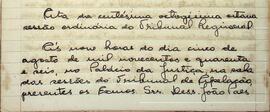 Acta da centésima octogésima oitava
sessão ordinária do Tribunal Regional
Às nove horas do dia cinco de
agosto de mil novecentos e quarenta
e seis, no Palácio da Justiça, na sala
das sessões do Tribunal de Apelação,
presentes os Exmos. Srs. Dess. João Paes